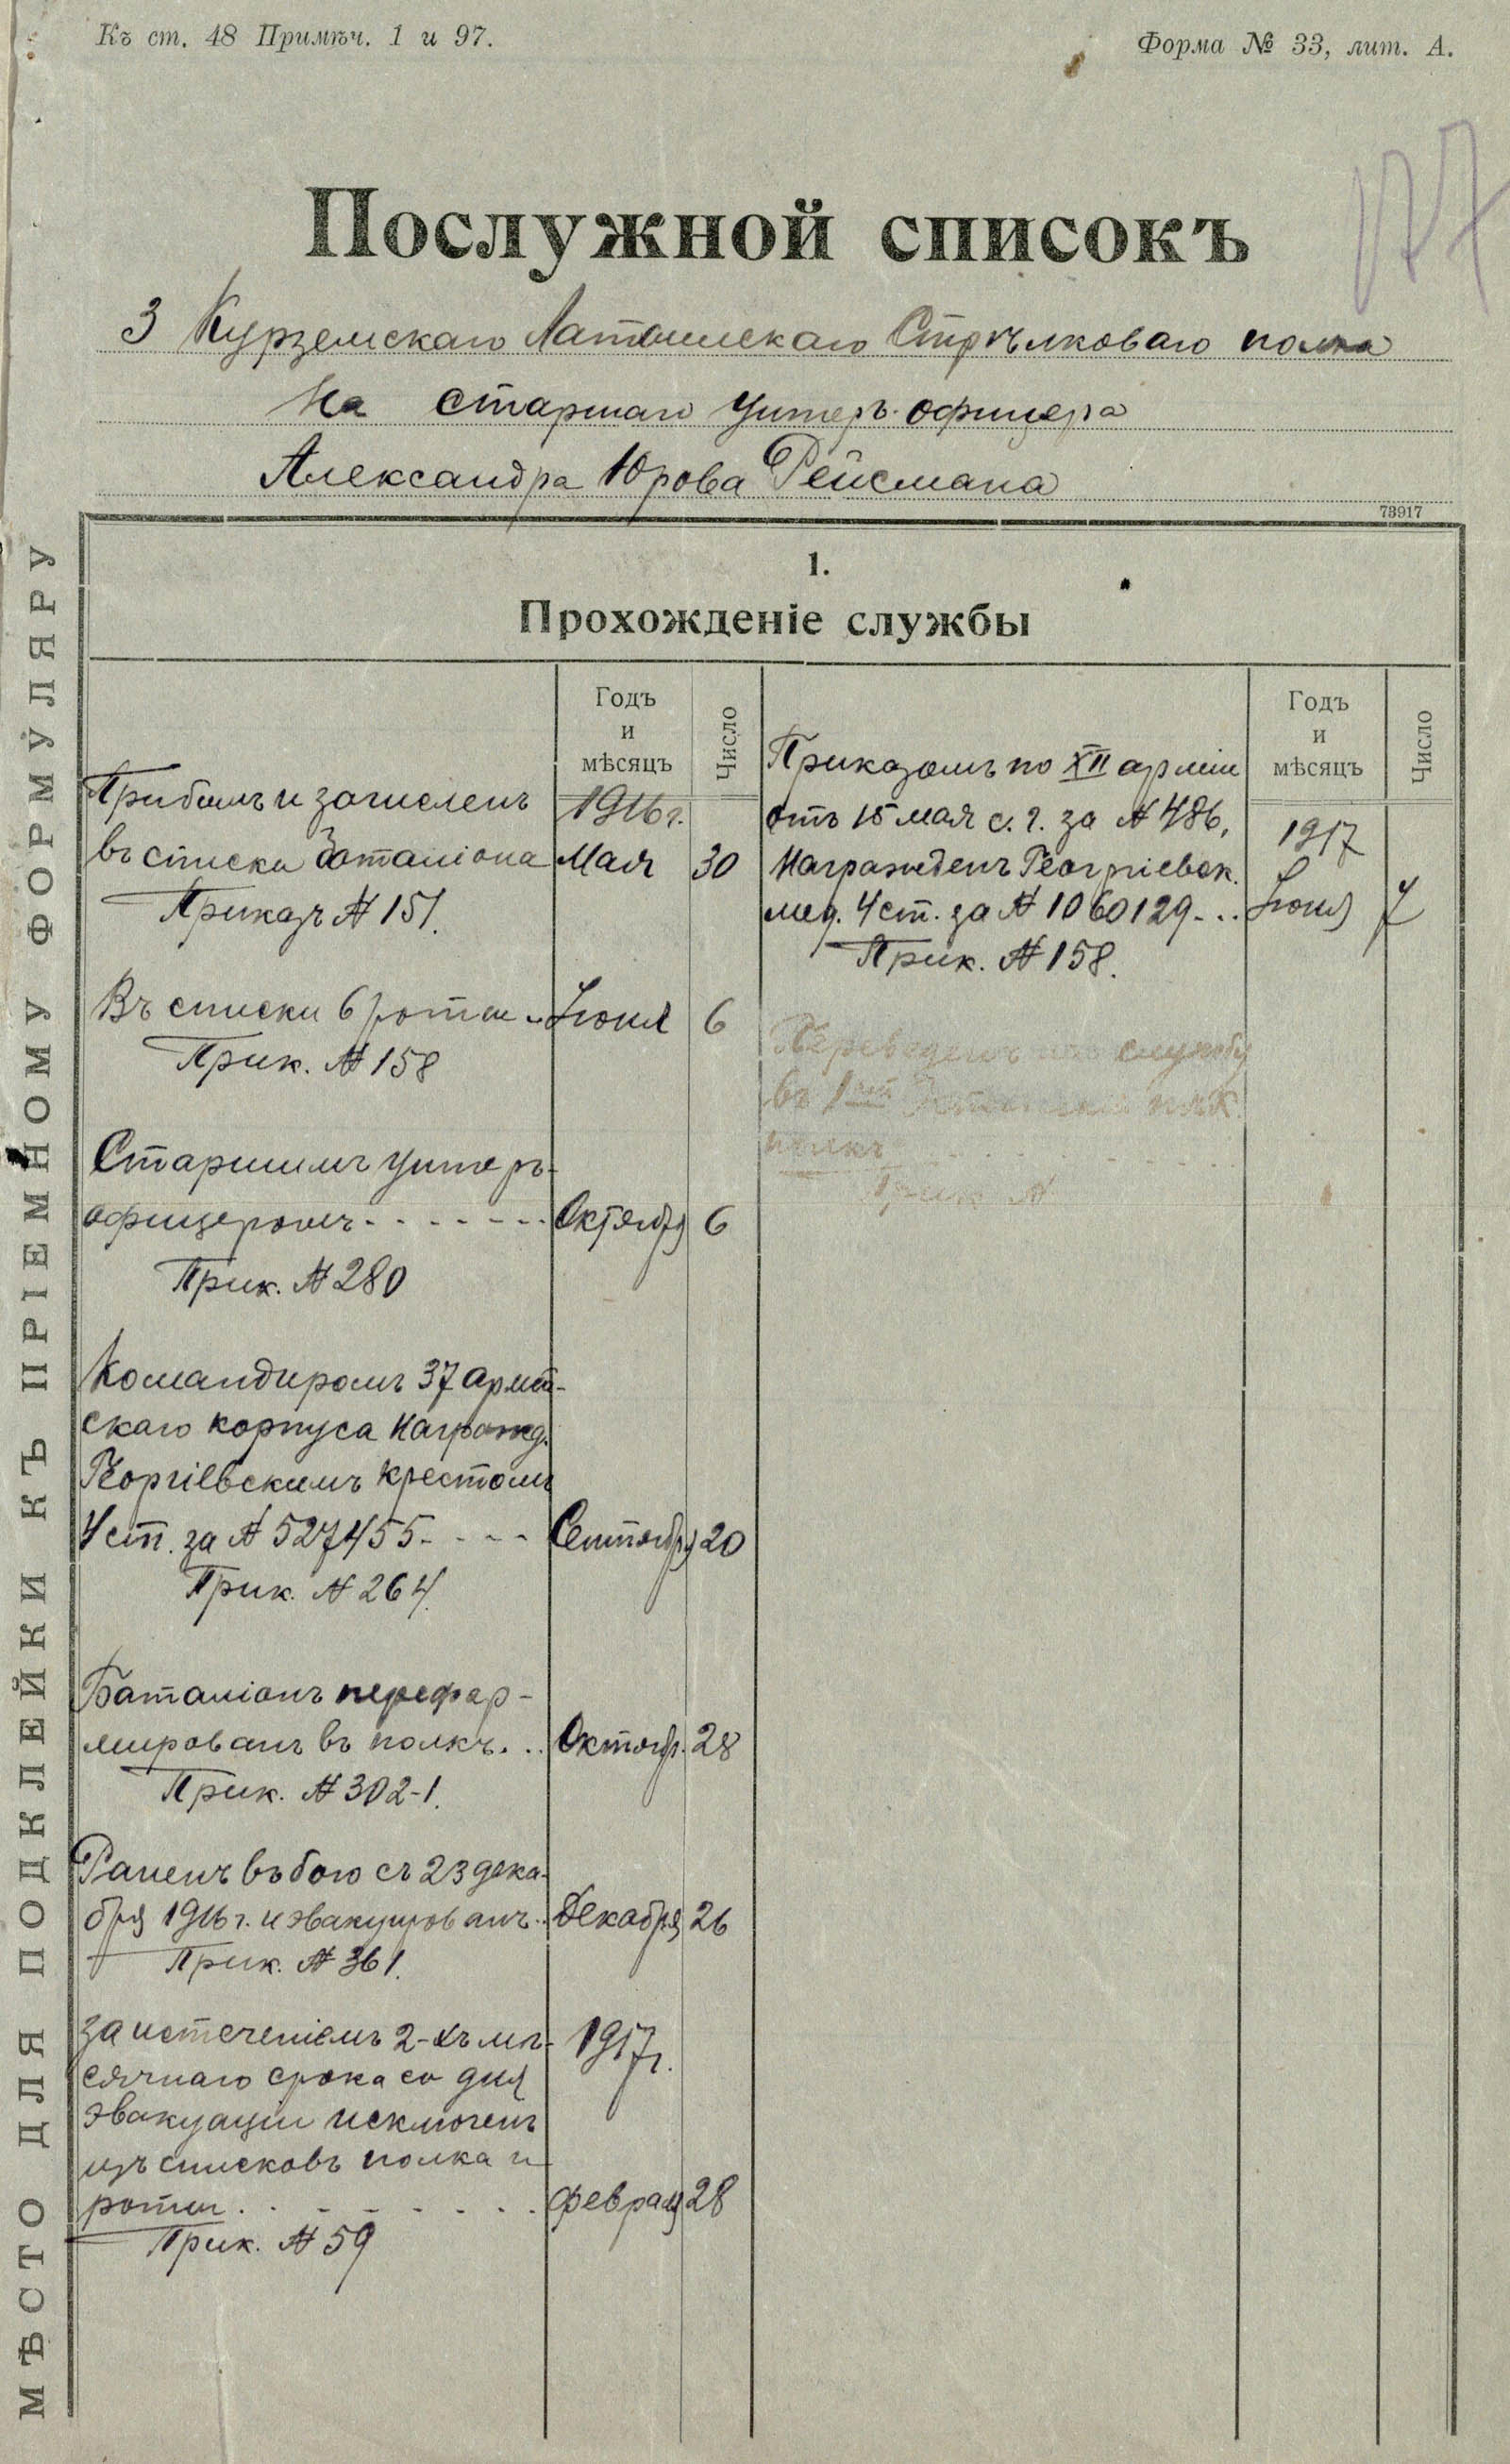 Къ ст. 48 Примѣч. 1 и 97.
Форма № 33, лит. А.
177
Послужной списокъ
3 Курземскаго Латышскаго Стрѣлковаго полка
На старшаго унтеръ-офицера
Александра Юрова Рейсмана
73917
МѢСТО ДЛЯ ПОДКЛЕЙКИ КЪ ПРІЕМНОМУ ФОРМУЛЯРУ
1.
Прохожденіе службы
Годъ
и
мѣсяцъ
Число
Прибылъ и зачисленъ
1916 г.
въ списки баталіона Мая 30
Приказъ № 151.
Въ списки 6 роты Іюня 6
Прик. № 158
Старшимъ унтеръ-
офицеромъ - - - - - - - Октября 6
Прик. № 280
Командиромъ 37 армей-
скаго корпуса награжд.
Георгіевскимъ крестомъ
4 ст. за № 527455 - - - - Сентября 20
Прик. № 264.
Баталіонъ перефор-
мированъ въ полкъ. . . Октябр. 28
Прик. № 302-1.
Раненъ въ бою съ 23 дека-
бря 1916 г. и эвакуированъ . . Декабря 26
Прик. № 361.
За истеченіемъ 2-хъ мѣ- 1917 г.
сячнаго срока со дня
эвакуаціи исключенъ
изъ списковъ полка и
роты . - - - - - - . Февраля 28
Прик. № 59
Годъ
и
мѣсяцъ
Число
Приказомъ по XII арміи
отъ 15 мая с. г. за № 486, 1917
награжденъ Георгіевск.
мед. 4 ст. за № 1060129 - . . Іюня 7
Прик. № 158.
Переведенъ на службу
въ 1ый Эстонскій пѣх.
полкъ
Прик. №